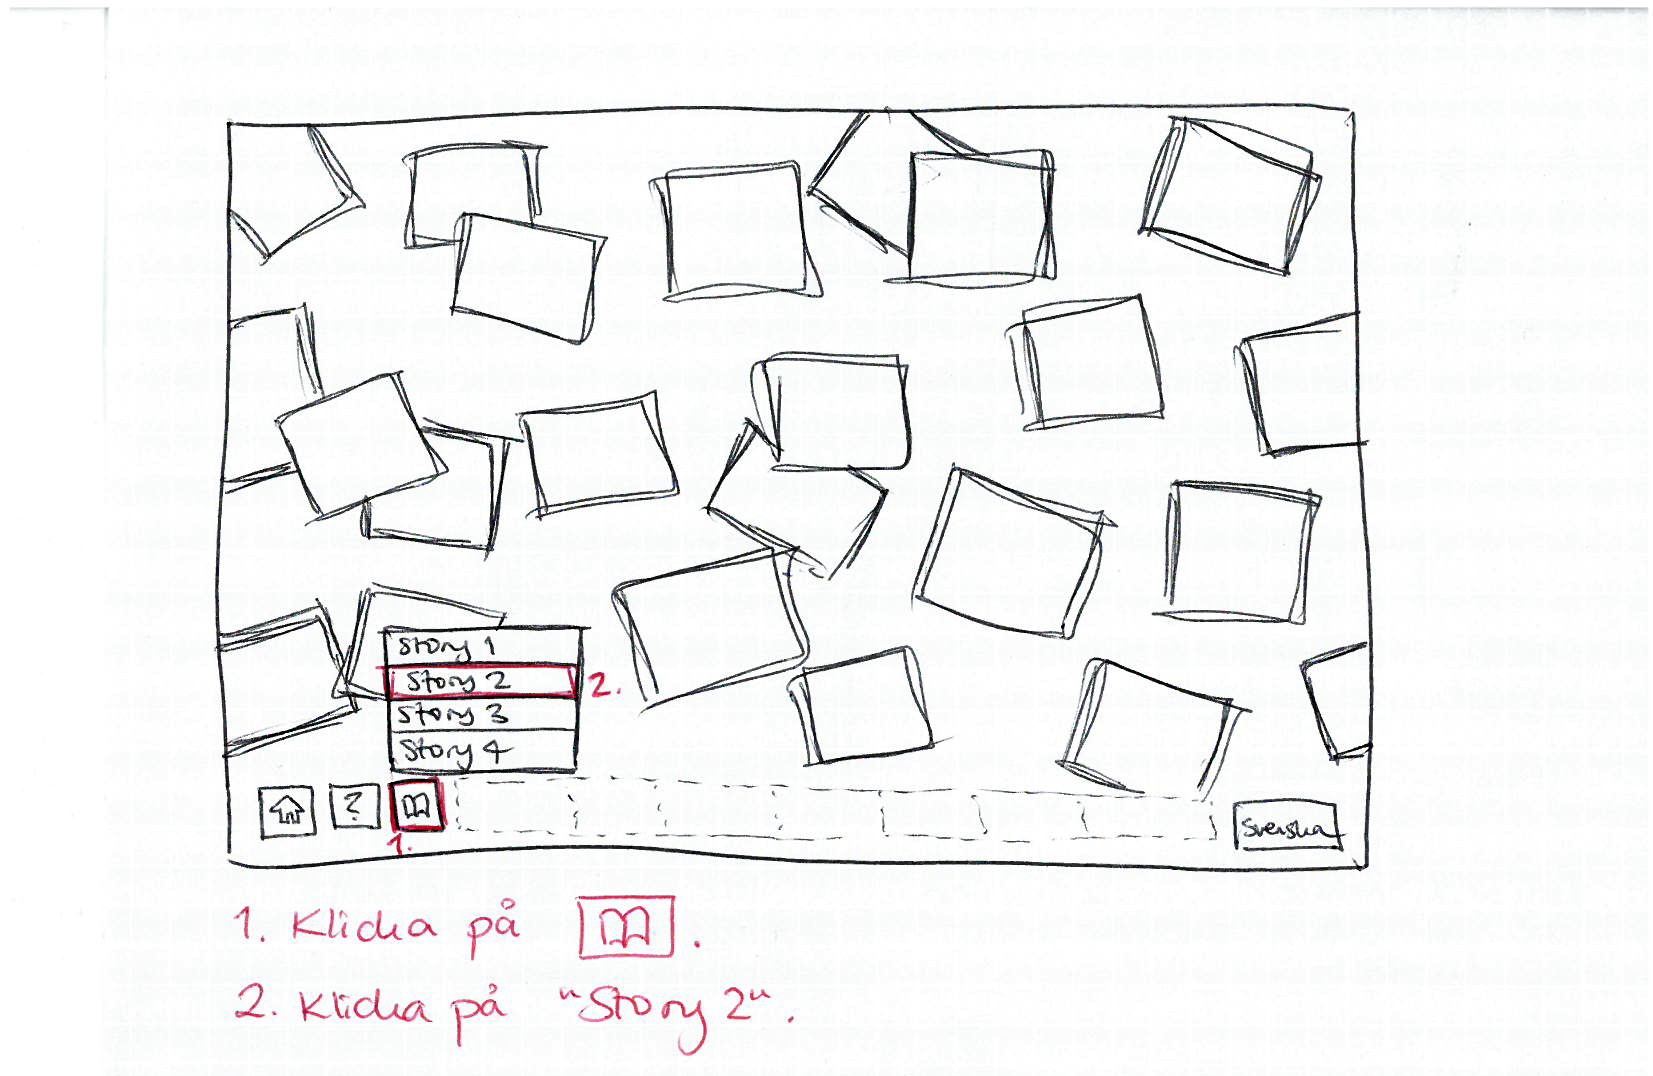 Story 1
Story 2
2.
Story 3
Story 4
?
Svenska
1.
1. Klicka på .
2. Klicka på "Story 2".